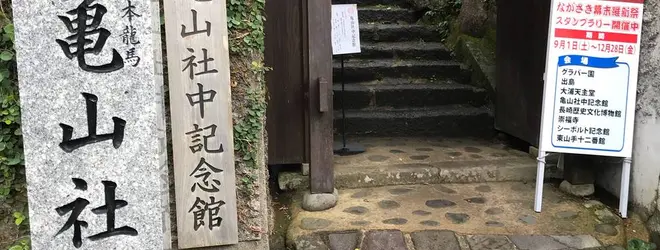 本龍馬
亀山社
山社中記念館
ながさき幕末維新祭
スタンプラリー開催中
期間
9月1日(土)~12月28日(金)
会場
グラバー園
出島
大浦天主堂
亀山社中記念館
長崎歴史文化博物館
崇福寺
シーボルト記念館
東山手十二番館